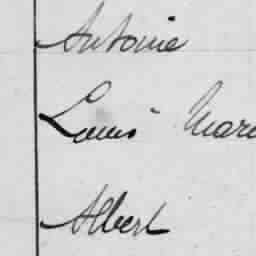 Antoine
Louis Mari
Albert